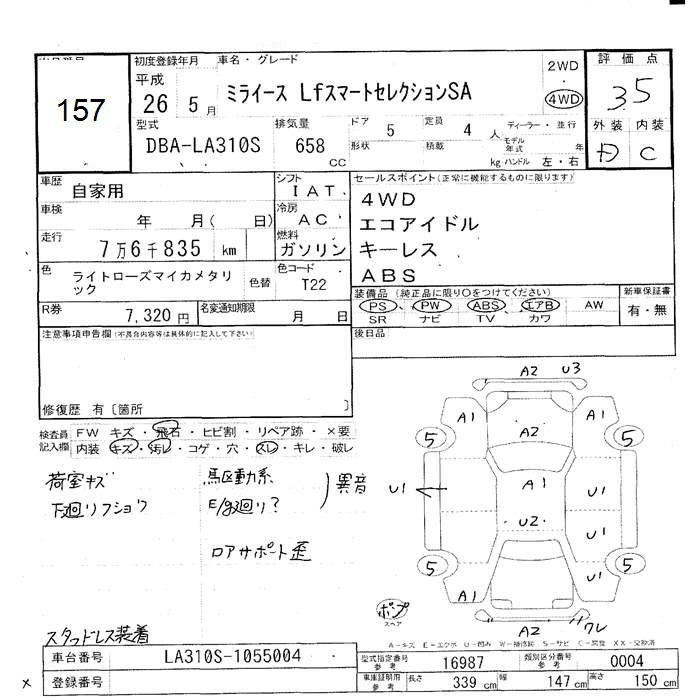 157
初度登録年月 車名・グレード
平成
26 5月 ミライース LfスマートセレクションSA
2WD
4WD
評価点
35
外装 内装
D C
型式 排気量 ドア 定員 ディーラー・並行
DBA-LA310S 658 CC 5 4 人
形状 積載 kg モデル年式 年
ハンドル 左・右
車歴 自家用 シフト IAT
車検 年 月( 日) 冷房 AC
走行 7万6千835 km 燃料 ガソリン
色 ライトローズマイカメタリック 色替 色コード T22
R券 7,320円 名変通知期限 月 日
セールスポイント(正常に機能するものに限ります)
4WD
エコアイドル
キーレス
ABS
装備品(純正品に限り○をつけてください) 新車保証書
PS PW ABS エアB AW 有・無
SR ナビ TV カワ
後日品
注意事項申告欄(不具合内容等は具体的に記入して下さい)
修復歴 有〔箇所 〕
検査員記入欄
FW キズ・飛石・ヒビ割・リペア跡・×要
内装 キズ・汚レ・コゲ・穴・スレ・キレ・破レ
荷室キズ
下廻リフショク
駆動系
E/g廻り?
異音
ロアサポート歪
スタッドレス装着
A2 U3
A1 A1
5 A2 5
A1
U1 U1
U2 U1
5 5
U1
A1
ボプ
スペア
A2 ワレ
A-キズ E-エクボ U-凹み W-補修跡 S-サビ C-腐蝕 XX-交換済
車台番号 LA310S-1055004
登録番号
×
型式指定番号 参考 16987 類別区分番号 参考 0004
車庫証明用 参考 長さ 339 cm 幅 147 cm 高さ 150 cm